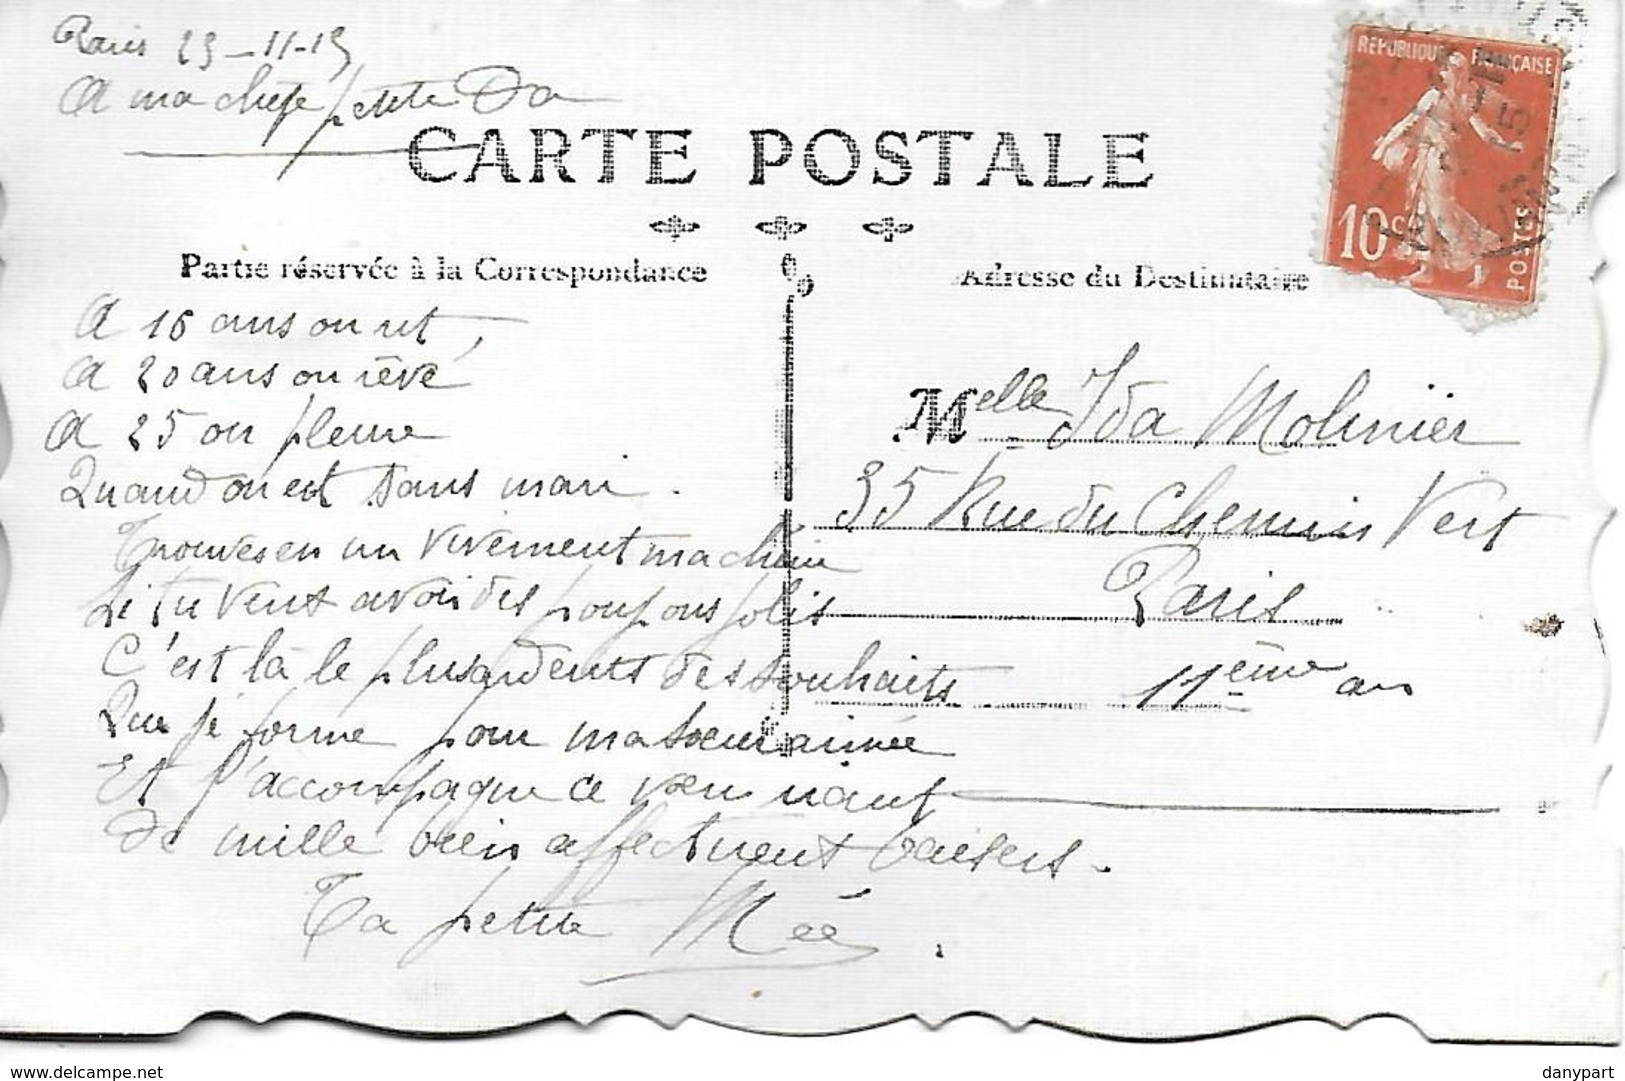 Paris 23-11-15
A ma chère petite Da
CARTE POSTALE
REPUBLIQUE FRANÇAISE
10c
POSTES
Partie réservée à la Correspondance
Adresse du Destinataire
A 16 ans on rit,
A 20 ans on rêve
A 25 on pleure
Quand on est sans mari.
Trouves en un vivement ma chérie
Si tu veux avoir des poupons jolis
C'est là le plus ardents des souhaits
Que je forme pour ma soeur aimée
Et j'accompagne ce voeu
de mille bien affectueux baisers.
Ta petite Mée.
Melle Ida Molinier
35 Rue du Chemin Vert
Paris
11ème arr
danypart
www.delcampe.net